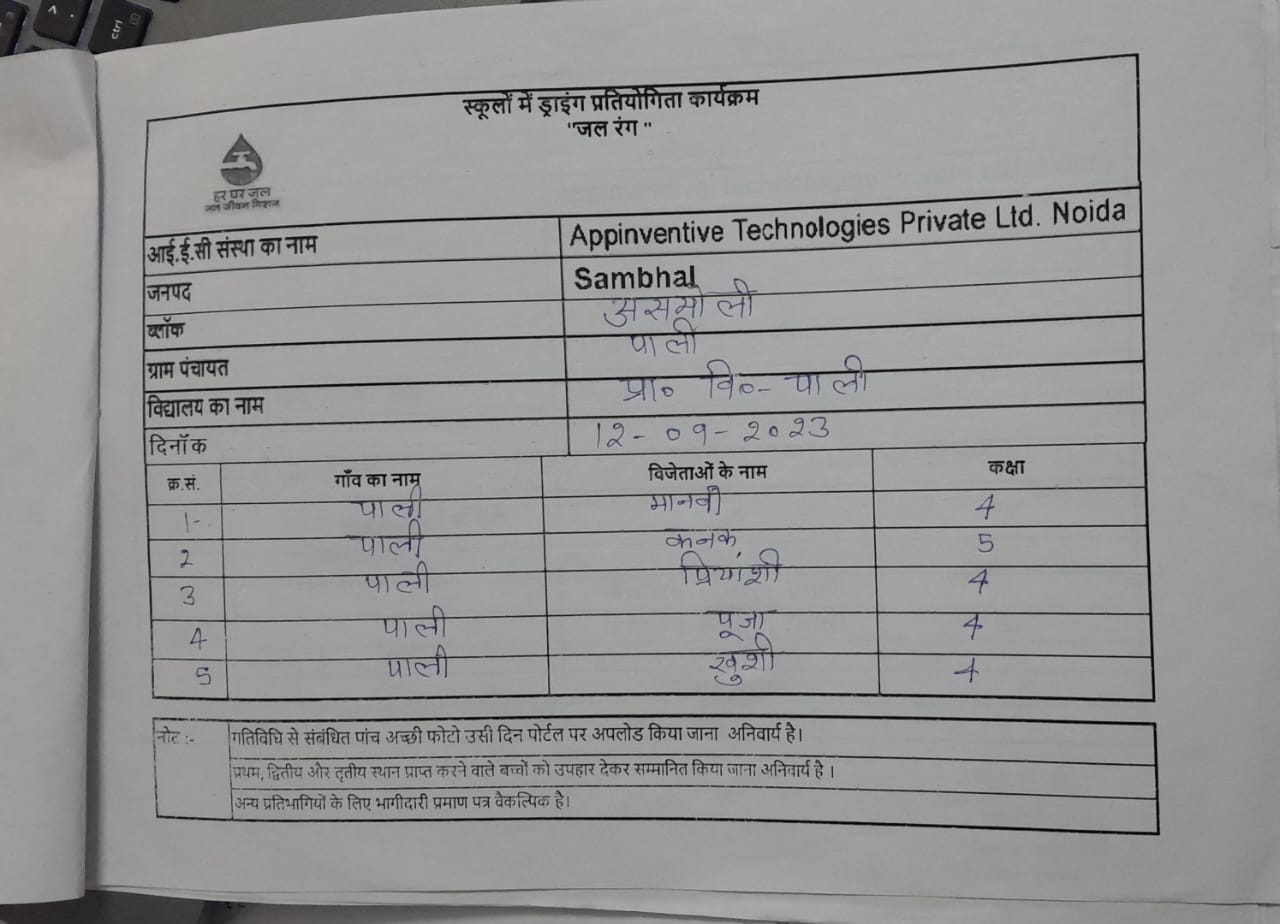 ctrl
स्कूलों में ड्राइंग प्रतियोगिता कार्यक्रम
"जल रंग "
हर घर जल
जल जीवन मिशन
आई.ई.सी संस्था का नाम Appinventive Technologies Private Ltd. Noida
जनपद Sambhal
ब्लॉक असमोली
ग्राम पंचायत पाली
विद्यालय का नाम प्रा० वि०- पाली
दिनॉक 12-09-2023
क्र.सं. गाँव का नाम विजेताओं के नाम कक्षा
1- पाली मानवी 4
2 पाली कनक 5
3 पाली प्रियांशी 4
4 पाली पूजा 4
5 पाली खुशी 4
नोट :- गतिविधि से संबंधित पांच अच्छी फोटो उसी दिन पोर्टल पर अपलोड किया जाना अनिवार्य है।
प्रथम, द्वितीय और तृतीय स्थान प्राप्त करने वाले बच्चों को उपहार देकर सम्मानित किया जाना अनिवार्य है ।
अन्य प्रतिभागियों के लिए भागीदारी प्रमाण पत्र वैकल्पिक है।